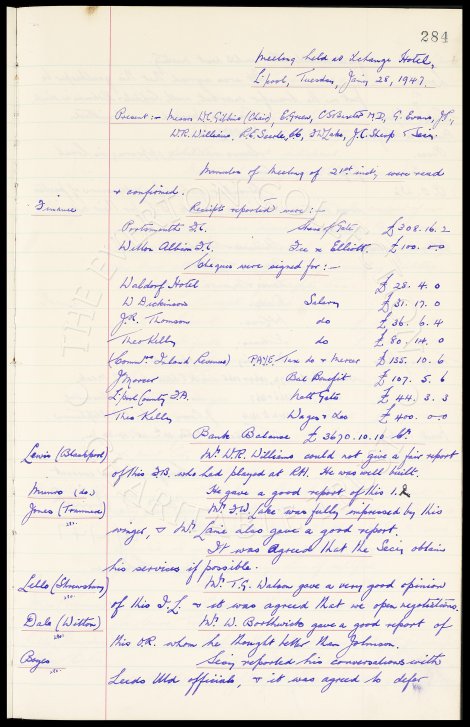 284
Meeting held at Xchange Hotel,
L'pool, Tuesday, Jany 28, 1947.
Present:- Messrs W.C. Gibbins (Chair), E. Green, C.S. Baxter M.D., G. Evans, J.P.,
W.R. Williams, R.E. Searle, F.W. Lake, J.C. Sharp & Secy.
Minutes of Meeting of 21st inst, were read
& confirmed.
Finance
Receipts reported were:-
Portsmouth F.C. Share of Gate £308. 16. 2
Witton Albion F.C. Fee re Elliott. £100. 0. 0
Cheques were signed for:-
Waldorf Hotel £28. 4. 0
W Dickinson Salary £31. 17. 0
J.R. Thomson do £36. 6. 4
Theo Kelly do £80. 14. 0
Commrs Inland Revenue) PAYE. Tax do & Mercer £135. 10. 6
J Mercer Bal Benefit £107. 5. 6
L'pool County F.A. Nett Gate £44. 3. 3
Theo Kelly Wages & do £400. 0. 0
Bank Balance £3670. 10. 10 Cr.
Lewis (Blackpool) Mr. W.R. Williams could not give a fair report
of this F.B. who had played at RH. He was well built.
Munro (do) He gave a good report of this I.R
Jones (Tranmere) Mr. F.W. Lake was fully impressed by this
winger, & Mr. also gave a good report.
It was Agreed that the Secy obtain
his services if possible.
Lello (Shrewsbury) Mr. T.G. Watson gave a very good opinion
of this I.L. & it was agreed that we open negotiations.
Dale (Witton) Mr. W. Borthwick gave a good report of
this O.R. whom he thought better than Johnson.
Boyes Secy reported his conversations with
Leeds Utd officials, & it was agreed to defer